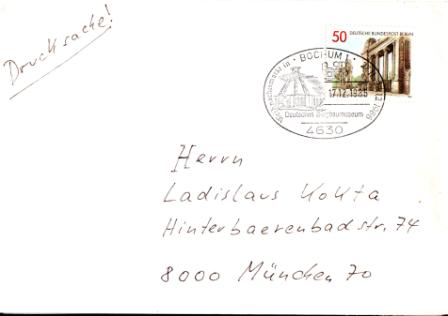 Drucksache!
50 DEUTSCHE BUNDESPOST BERLIN
BOCHUM 1
17.12.1986
Deutsches Bergbaumuseum
4630
Herrn
Ladislaus Kokta
Hinterbaerenbadstr. 74
8000 München 70